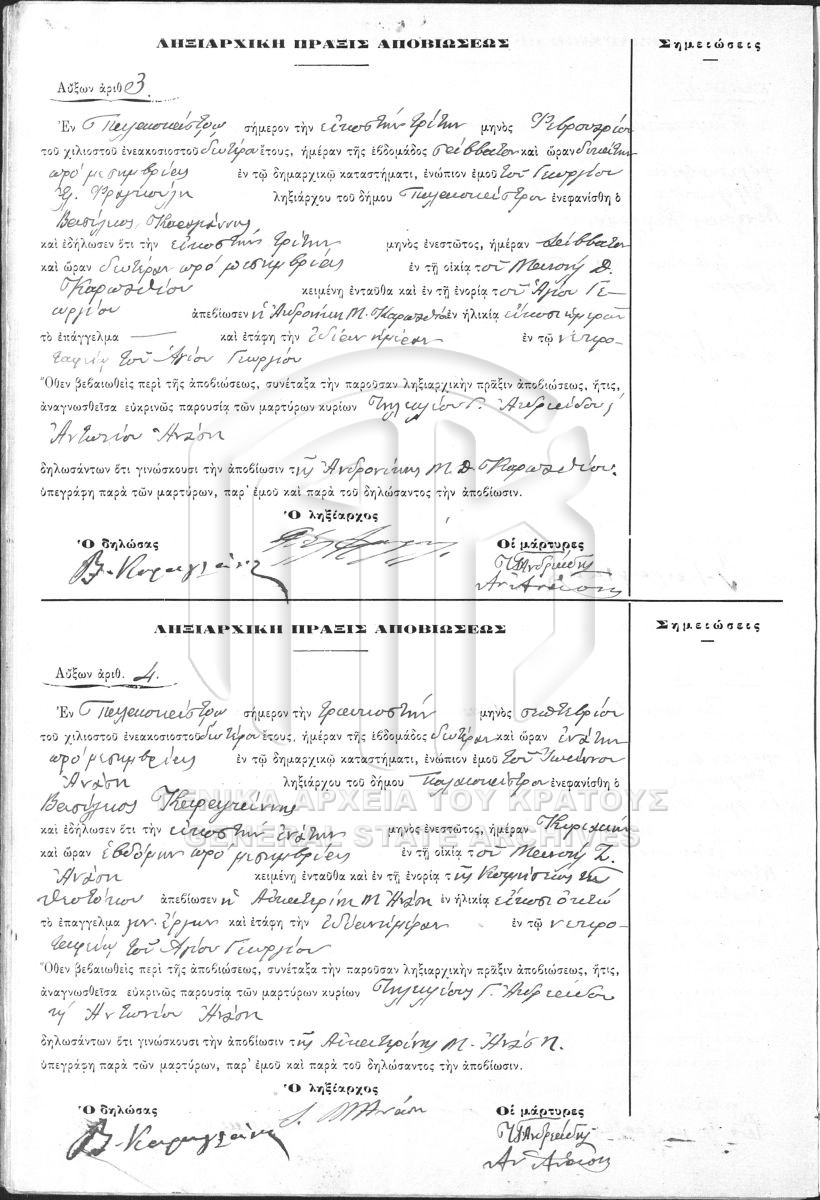 ΛΗΞΙΑΡΧΙΚΗ ΠΡΑΞΙΣ ΑΠΟΒΙΩΣΕΩΣ
Σημειώσεις
Αὔξων ἀριθ. 3.
Ἐν Παλαιοκάστρῳ σήμερον τὴν εἰκοστὴν τρίτην μηνὸς Φεβρουαρίου
τοῦ χιλιοστοῦ ἐνεακοσιοστοῦ δευτέρου ἔτους, ἡμέραν τῆς ἑβδομάδος Σάββατον καὶ ὥραν δεκάτην
πρὸ μεσημβρίας ἐν τῷ δημαρχικῷ καταστήματι, ἐνώπιον ἐμοῦ τοῦ Γεωργίου
ληξιάρχου τοῦ δήμου Παλαιοκάστρου ἐνεφανίσθη ὁ
Βασίλειος
καὶ ἐδήλωσεν ὅτι τὴν εἰκοστὴν τρίτην μηνὸς ἐνεστῶτος, ἡμέραν Σάββατον
καὶ ὥραν δευτέραν πρὸ μεσημβρίας ἐν τῇ οἰκίᾳ τοῦ Μανουὴ Δ.
Καραπαθίου κειμένῃ ἐνταῦθα καὶ ἐν τῇ ἐνορίᾳ τοῦ Ἁγίου Γε-
ωργίου ἀπεβίωσεν ἡ Ἀνδρονίκη Μ. ἐν ἡλικίᾳ εἴκοσι ἡμερῶν
τὸ ἐπάγγελμα — καὶ ἐτάφη τὴν ἰδίαν ἡμέραν ἐν τῷ νεκρο-
ταφείῳ τοῦ Ἁγίου Γεωργίου
Ὅθεν βεβαιωθεὶς περὶ τῆς ἀποβιώσεως, συνέταξα τὴν παροῦσαν ληξιαρχικὴν πρᾶξιν ἀποβιώσεως, ἥτις,
ἀναγνωσθεῖσα εὐκρινῶς παρουσίᾳ τῶν μαρτύρων κυρίων Γ. Ἀνδρεάδου
Ἀντωνίου Ἀνάση
δηλωσάντων ὅτι γινώσκουσι τὴν ἀποβίωσιν τῆς Ἀνδρονίκης Μ. Δ. Καραπαθίου.
ὑπεγράφη παρὰ τῶν μαρτύρων, παρ' ἐμοῦ καὶ παρὰ τοῦ δηλώσαντος τὴν ἀποβίωσιν.
Ὁ ληξίαρχος
Ὁ δηλώσας
Οἱ μάρτυρες
ΛΗΞΙΑΡΧΙΚΗ ΠΡΑΞΙΣ ΑΠΟΒΙΩΣΕΩΣ
Σημειώσεις
Αὔξων ἀριθ. 4.
Ἐν Παλαιοκάστρῳ σήμερον τὴν τριακοστὴν μηνὸς σεπτεβρίου
τοῦ χιλιοστοῦ ἐνεακοσιοστοῦ δευτέρου ἔτους, ἡμέραν τῆς ἑβδομάδος δευτέραν καὶ ὥραν ἐνάτην
πρὸ μεσημβρίας ἐν τῷ δημαρχικῷ καταστήματι, ἐνώπιον ἐμοῦ τοῦ Ἰωάννου
Ἀνάση ληξιάρχου τοῦ δήμου Παλαιοκάστρου ἐνεφανίσθη ὁ
Βασίλειος
ΓΕΝΙΚΑ ΑΡΧΕΙΑ ΤΟΥ ΚΡΑΤΟΥΣ
καὶ ἐδήλωσεν ὅτι τὴν εἰκοστὴν ἐνάτην μηνὸς ἐνεστῶτος, ἡμέραν Κυριακὴν
GENERAL STATE ARCHIVES
καὶ ὥραν ἑβδόμην πρὸ μεσημβρίας ἐν τῇ οἰκίᾳ τοῦ Μανουὴ Ζ.
Ἀνάση κειμένῃ ἐνταῦθα καὶ ἐν τῇ ἐνορίᾳ τῆς Κοιμήσεως τῆς
Θεοτόκου ἀπεβίωσεν ἡ Αἰκατερίνη Μ. Ἀνάση ἐν ἡλικίᾳ εἴκοσι ὀκτὼ
τὸ ἐπάγγελμα γυν. ἔργων καὶ ἐτάφη τὴν ἰδίαν ἡμέραν ἐν τῷ νεκρο-
ταφείῳ τοῦ Ἁγίου Γεωργίου
Ὅθεν βεβαιωθεὶς περὶ τῆς ἀποβιώσεως, συνέταξα τὴν παροῦσαν ληξιαρχικὴν πρᾶξιν ἀποβιώσεως, ἥτις,
ἀναγνωσθεῖσα εὐκρινῶς παρουσίᾳ τῶν μαρτύρων κυρίων Γ. Ἀνδρεάδου
Ἀντωνίου Ἀνάση
δηλωσάντων ὅτι γινώσκουσι τὴν ἀποβίωσιν τῆς Αἰκατερίνης Μ. Ἀνάση.
ὑπεγράφη παρὰ τῶν μαρτύρων, παρ' ἐμοῦ καὶ παρὰ τοῦ δηλώσαντος τὴν ἀποβίωσιν.
Ὁ ληξίαρχος
Ὁ δηλώσας
Οἱ μάρτυρες